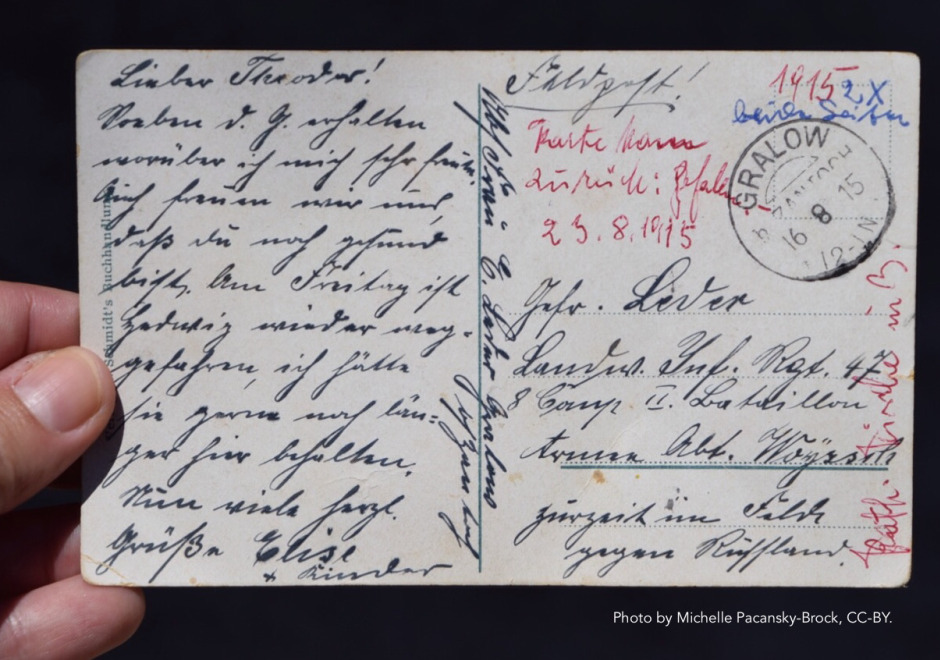 Lieber Theodor!
Soeben d. G. erhalten
worüber ich mich sehr freute.
Auch freuen wir uns,
daß du noch gesund
bist. Am Freitag ist
Hedwig wieder weg-
gefahren, ich hätte
sie gerne noch län-
ger hier behalten.
Nun viele herzl.
Grüße Elise
+ Kinder
Schmidt's Buchhandlung
Frau E. Leder Gralow
Feldpost!
1915
2 X
beide Seiten
Karte kam
zurück: Gefallen
23.8.1915
GRALOW
ZANTOCH
16 8 15
12-1N
Gefr. Leder
Landw. Inf. Rgt. 47
8 Comp II. Bataillon
Armee Abt. Woyrsch
zurzeit im Felde
gegen Russland.
Kirche in
Photo by Michelle Pacansky-Brock, CC-BY.